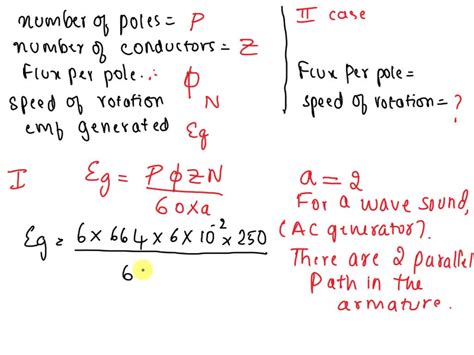 number of poles = P
number of conductors = Z
Flux per pole.∴ ϕ
speed of rotation N
emf generated Eg
II case
Flux Per pole =
speed of rotation = ?
I Eg = PϕZN / 60xa
Eg = 6 × 664 × 6 × 10⁻² × 250 / 6
a = 2
For a wave sound,
(AC generator).
There are 2 parallel
Path in the
armature.